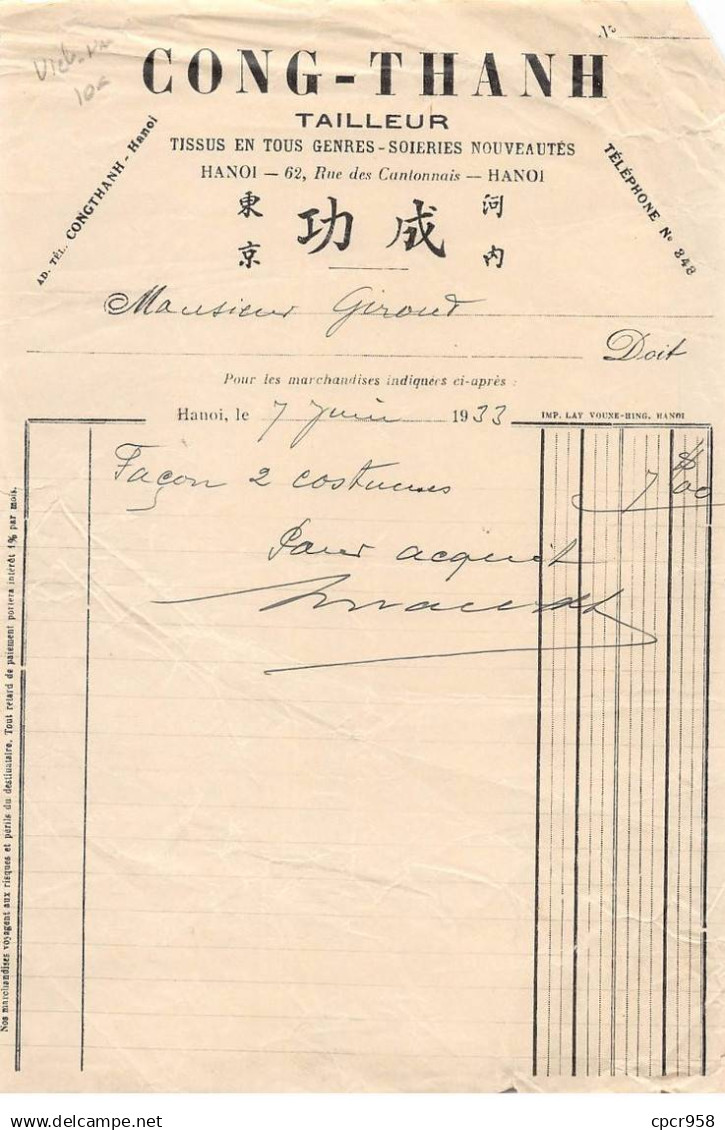 №
CONG-THANH
TAILLEUR
TISSUS EN TOUS GENRES - SOIERIES NOUVEAUTÉS
HANOI — 62, Rue des Cantonnais — HANOI
AD. TÉL. CONGTHANH - Hanoi
TÉLÉPHONE No 848
東京 功成 河内
Monsieur Giroud
Doit
Pour les marchandises indiquées ci-après :
Hanoi, le 7 Juin 1933
IMP. LAY VOUNE-HING, HANOI
Façon 2 costumes 7 $ 00
Pour acquit
Nos marchandises voyagent aux risques et périls du destinataire. Tout retard de paiement portera intérêt 1% par mois.
delcampe.net
cpcr958